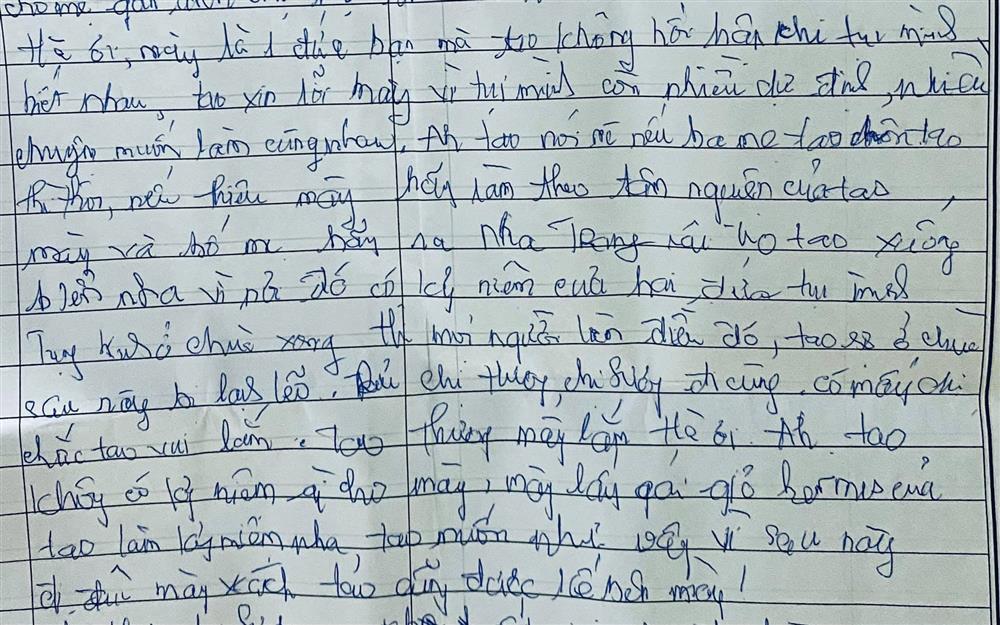 cho mẹ
Hè ơi, mày là 1 đứa bạn mà tao không hối hận khi tụi mình
biết nhau, tao xin lỗi mày vì tụi mình còn nhiều dự định, nhiều
chuyện muốn làm cùng nhau. tao nói nè nếu ba mẹ tao chôn tao
thì thôi, nếu thiêu mày hãy làm theo tâm nguyện của tao
mày và bố mẹ hãy ra nha Trang rải tro tao xuống
biển nha vì nơi đó có kỷ niệm của hai đứa tụi mình
Tụng kinh ở chùa xong thì mọi người làm điều đó, tao sợ ở chùa
sau này bị lạnh lẽo. chị thuỷ, chị đi cùng. có mấy chị
chắc tao vui lắm. tao thương mày lắm Hè ơi. tao
không có kỷ niệm gì cho mày, mày lấy cái giỏ hermes của
tao làm kỷ niệm nha, tao muốn như vậy vì sau này
đi đâu mày xách tao cũng được kế bên mày!